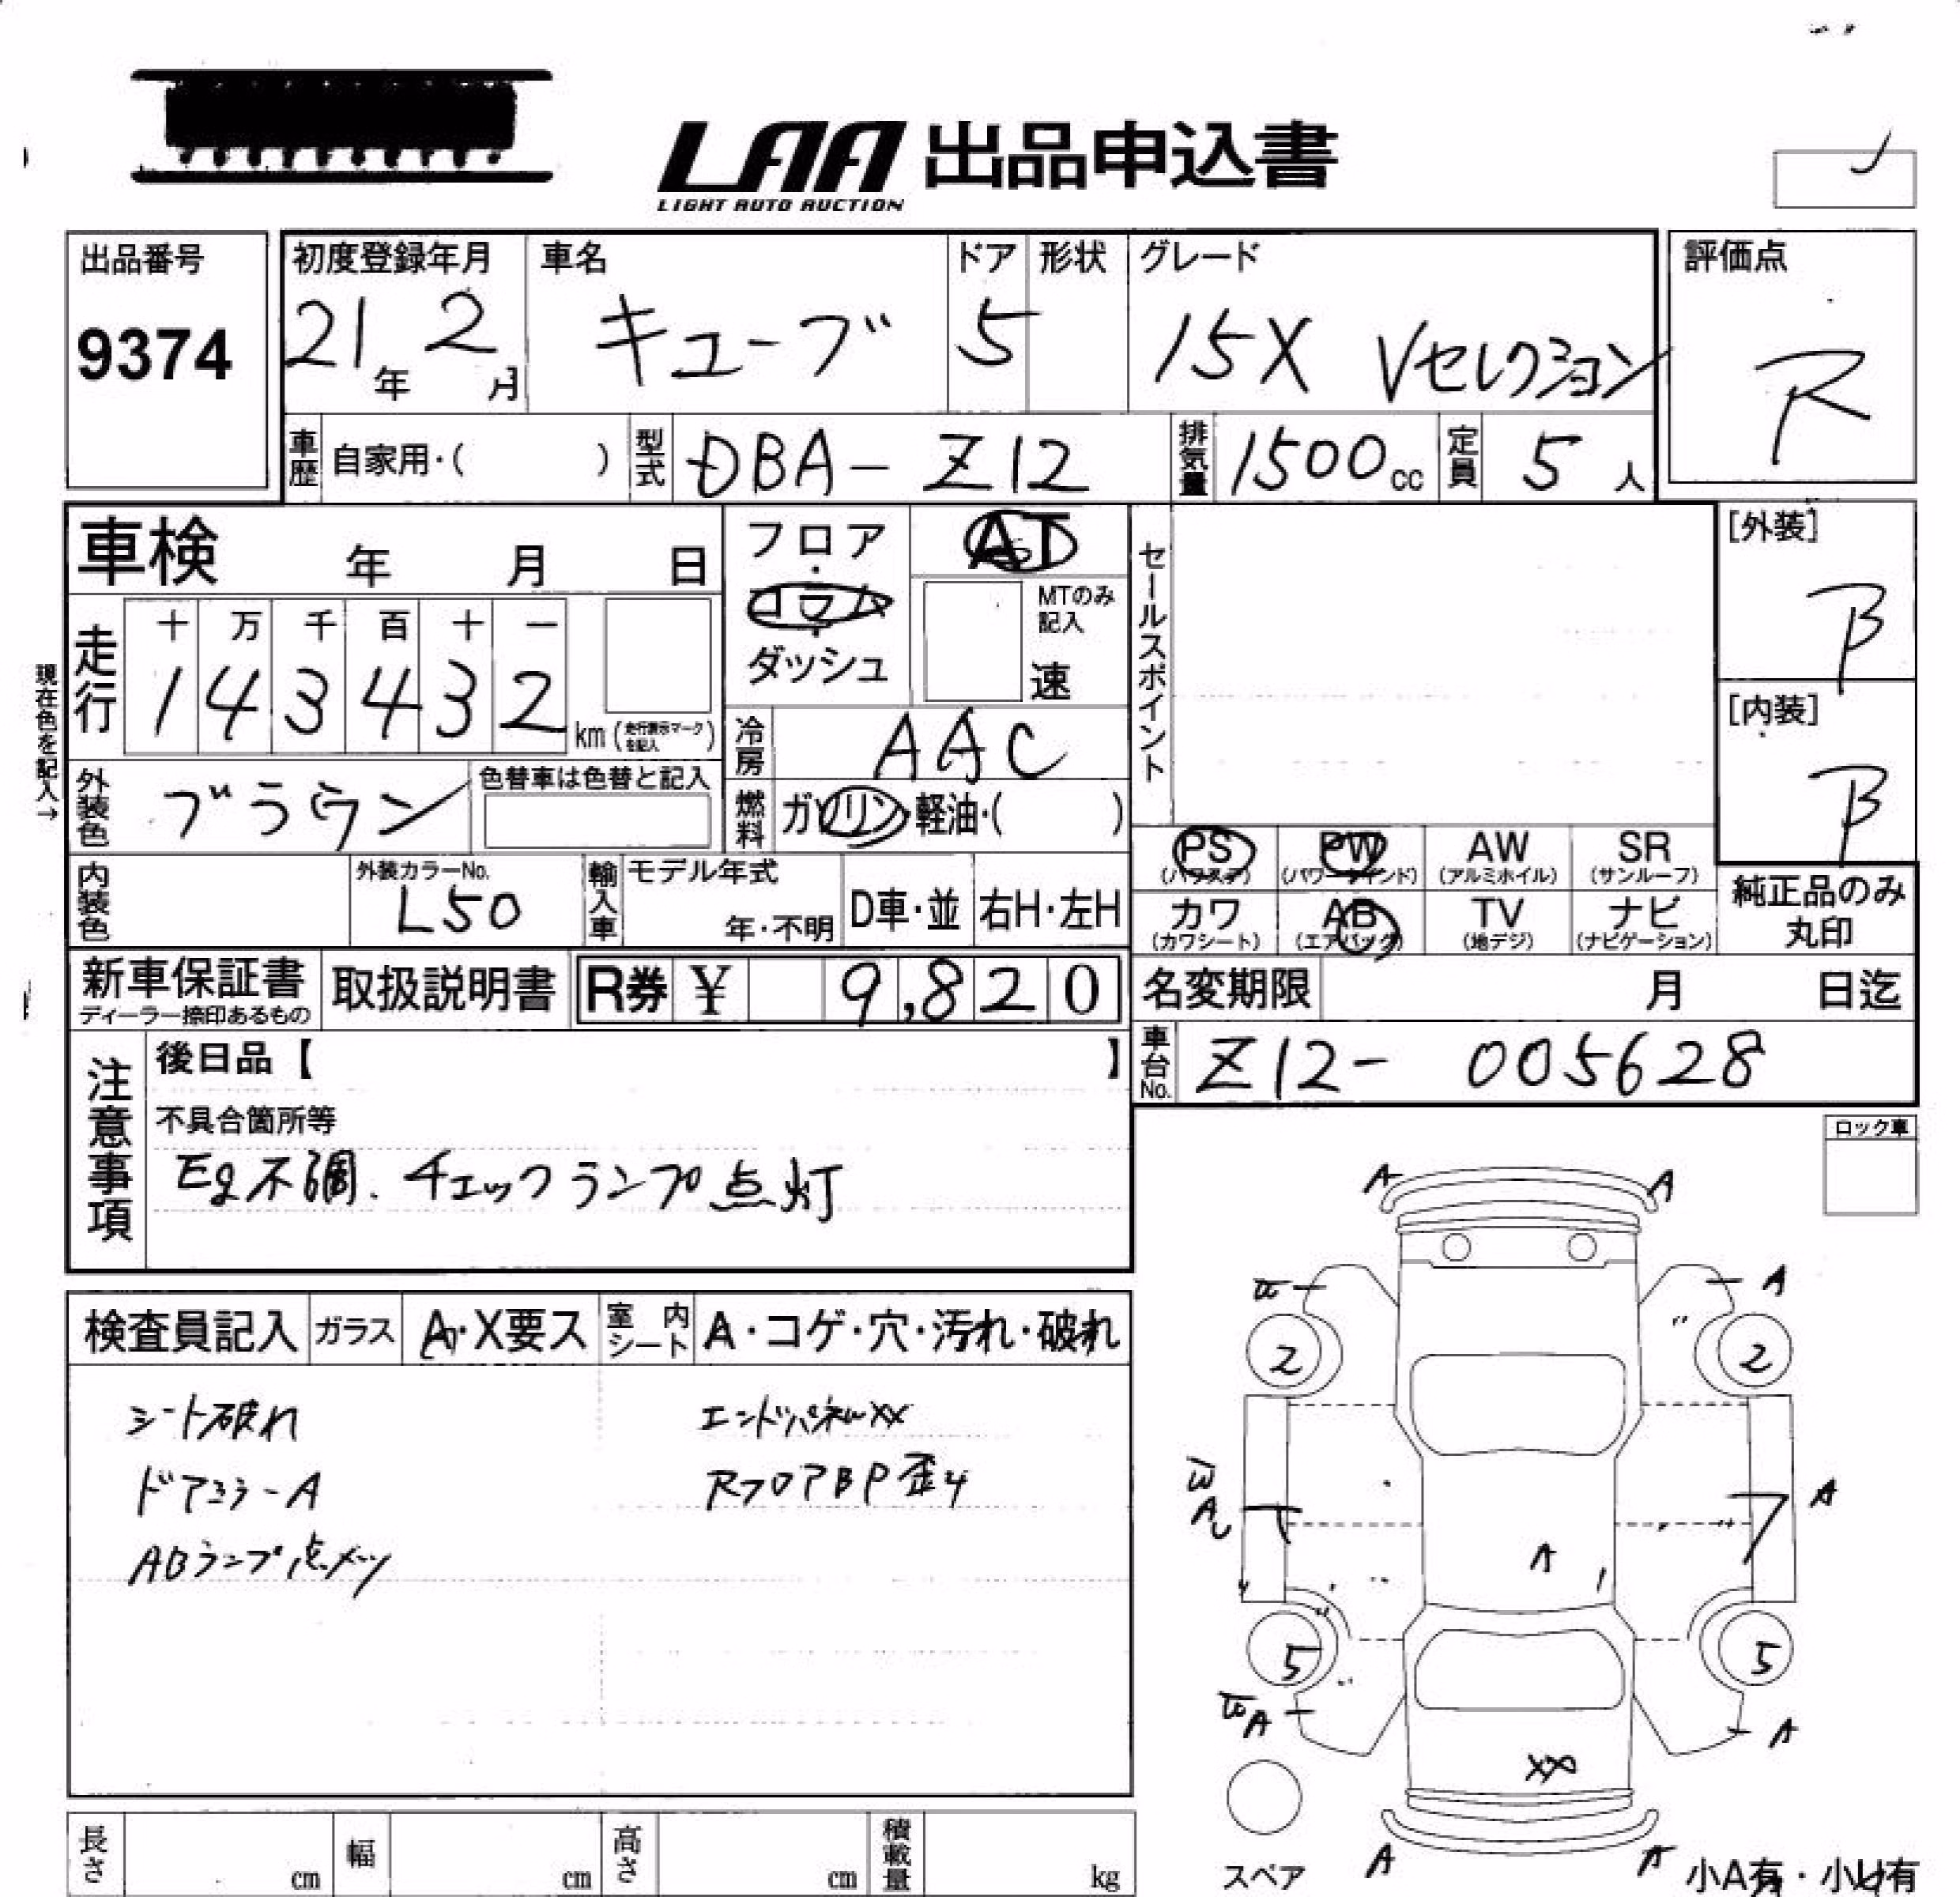 LAA 出品申込書
LIGHT AUTO AUCTION
出品番号 初度登録年月 車名 ドア 形状 グレード 評価点
9374 21年 2月 キューブ 5 15X Vセレクション R
車歴 自家用・( ) 型式 DBA-Z12 排気量 1500cc 定員 5人
車検 年 月 日 フロア・コラム・ダッシュ AT セールスポイント [外装] B
MTのみ記入 速
現在色を記入→
走行 十 万 千 百 十 一
1 4 3 4 3 2 km (走行表示マークを記入)
[内装] B
冷房 AAC
外装色 ブラウン 色替車は色替と記入 燃料 ガソリン・軽油・( )
PS (パワステ) PW (パワーウインド) AW (アルミホイル) SR (サンルーフ)
内装色 外装カラーNo. L50 輸入車 モデル年式 年・不明 D車・並 右H・左H
カワ (カワシート) AB (エアバッグ) TV (地デジ) ナビ (ナビゲーション) 純正品のみ丸印
新車保証書 ディーラー捺印あるもの 取扱説明書 R券 ¥ 9,820 名変期限 月 日迄
車台No. Z12- 005628
注意事項 後日品【 】
不具合箇所等
Eg不調. チェックランプ点灯
ロック車
検査員記入 ガラス A・X要ス 室内シート A・コゲ・穴・汚れ・破れ
シート破れ エンドパネルXX
ドアミラーA RフロアBP歪み
ABランプ点メツ
A A
A
2 2
A
A
A
5 5
A A
XX
A A
スペア 小A有・小U有
長さ cm 幅 cm 高さ cm 積載量 kg